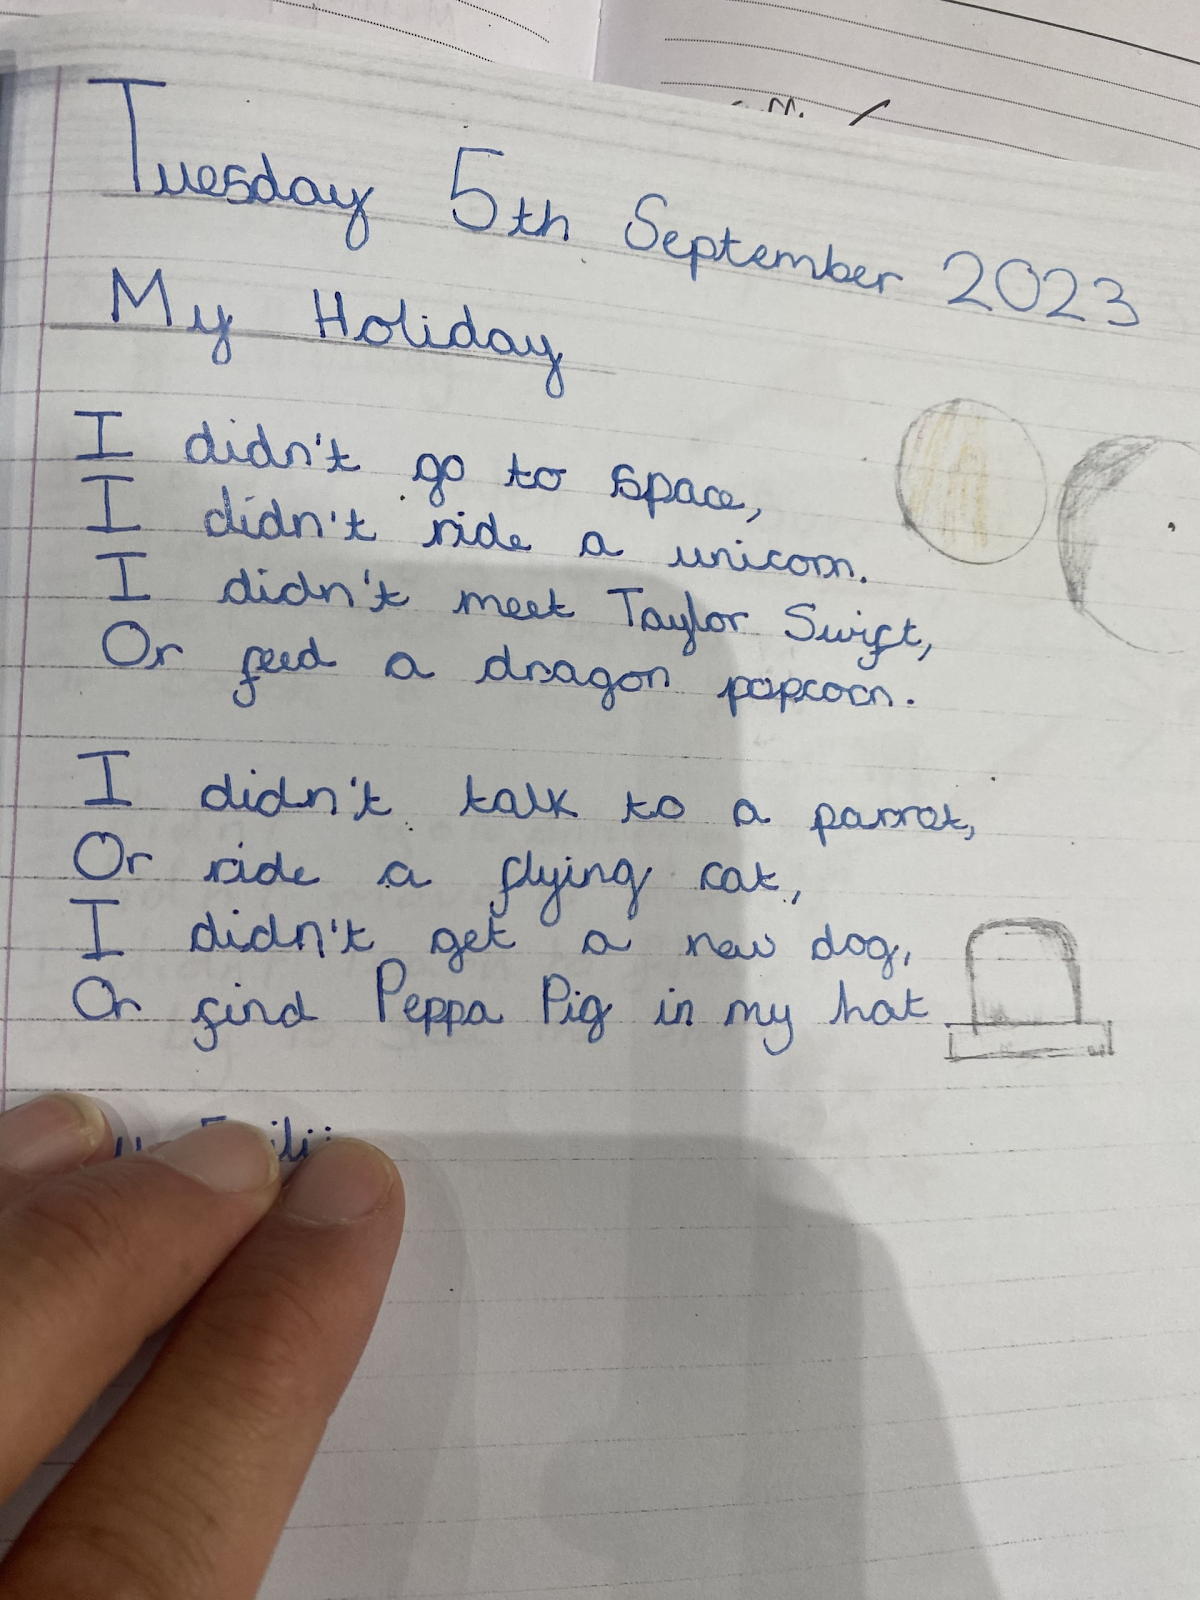 Tuesday 5th September 2023
My Holiday
I didn't go to space,
I didn't ride a unicorn.
I didn't meet Taylor Swift,
Or feed a dragon popcorn.
I didn't talk to a parrot,
Or ride a flying cat,
I didn't get a new dog,
Or find Peppa Pig in my hat